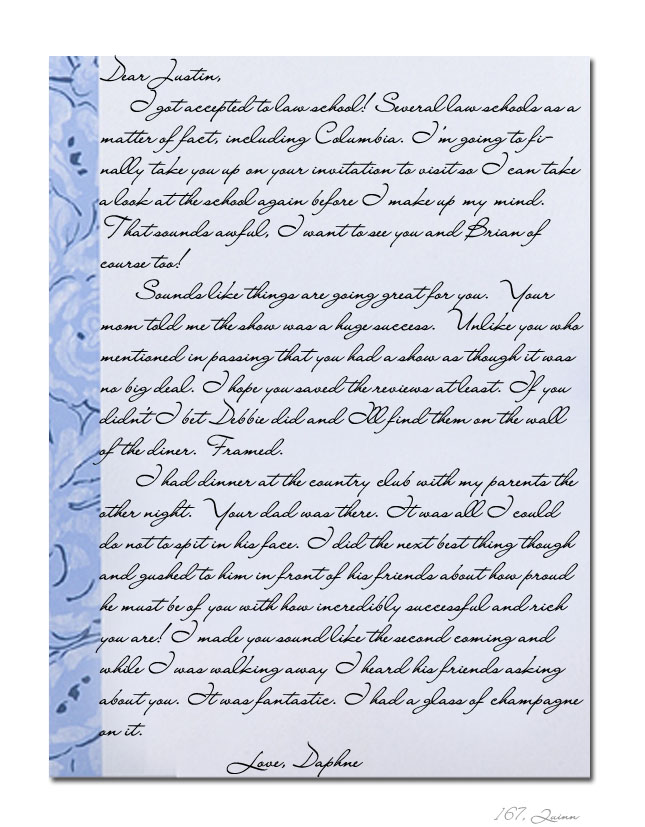 Dear Justin,
I got accepted to law school! Several law schools as a
matter of fact, including Columbia. I'm going to fi-
nally take you up on your invitation to visit so I can take
a look at the school again before I make up my mind.
That sounds awful, I want to see you and Brian of
course too!
Sounds like things are going great for you. Your
mom told me the show was a huge success. Unlike you who
mentioned in passing that you had a show as though it was
no big deal. I hope you saved the reviews at least. If you
didn't I bet Debbie did and I'll find them on the wall
of the diner. Framed.
I had dinner at the country club with my parents the
other night. Your dad was there. It was all I could
do not to spit in his face. I did the next best thing though
and gushed to him in front of his friends about how proud
he must be of you with how incredibly successful and rich
you are! I made you sound like the second coming and
while I was walking away I heard his friends asking
about you. It was fantastic. I had a glass of champagne
on it.
Love, Daphne
167. Quinn